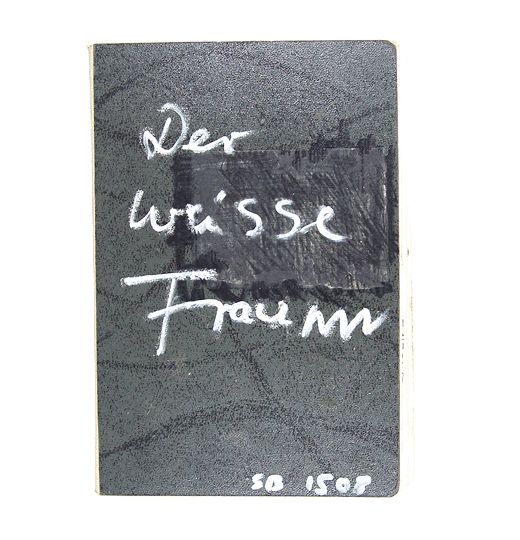 Der
weisse
Traum
SB 1508